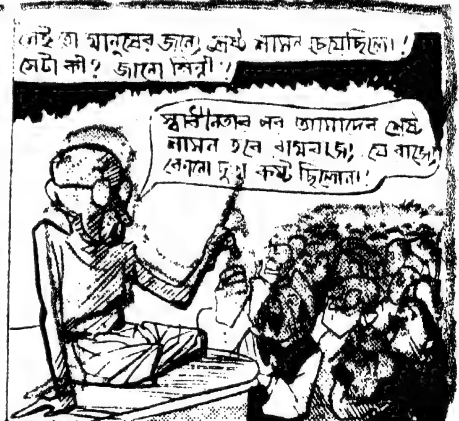 সেই তো মানুষের জন্যে শ্রেষ্ঠ শাসন চেয়েছিলো!
সেটা কী? জানো মিন্নী?
স্বাধীনতার পর আমাদের শ্রেষ্ঠ
শাসন হবে রামরাজ্য, যে রাজ্যে
কোনো দুঃখ কষ্ট ছিলোনা!